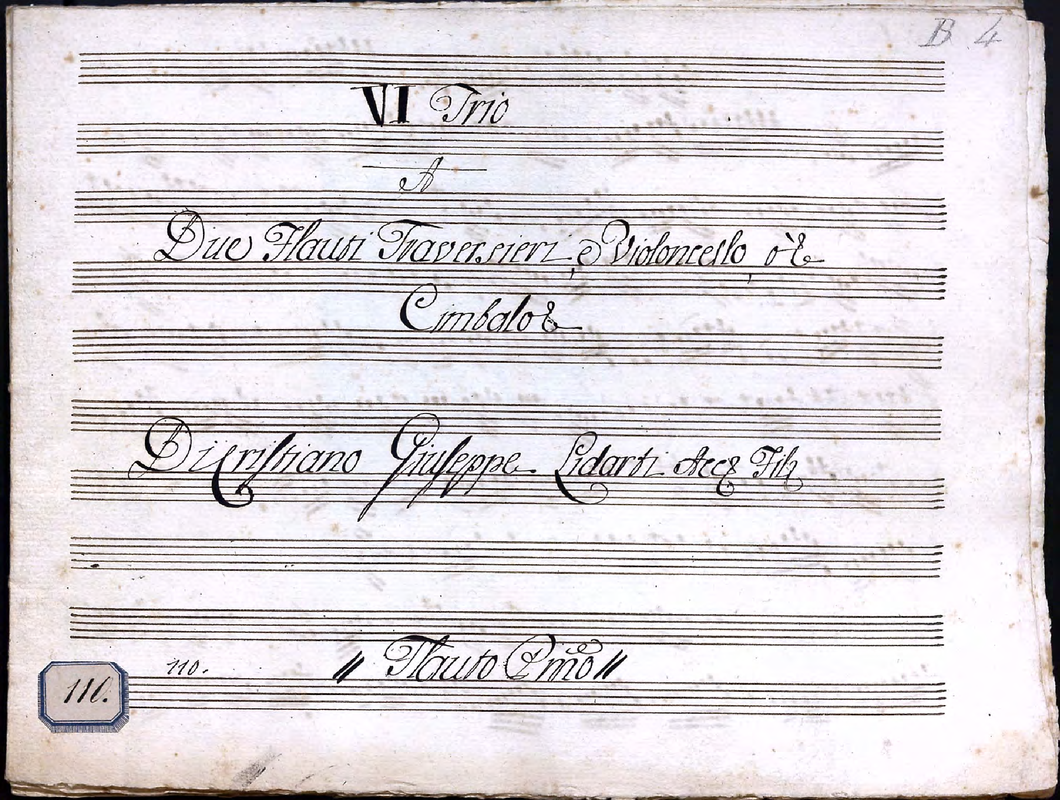 B 4
VI Trio
A
Due Flauti Traversieri, e Violoncello, ò &
Cimbalo &
Di Cristiano Giuseppe Lidarti Acc& Fil
110. // Flauto Pmo //
116.